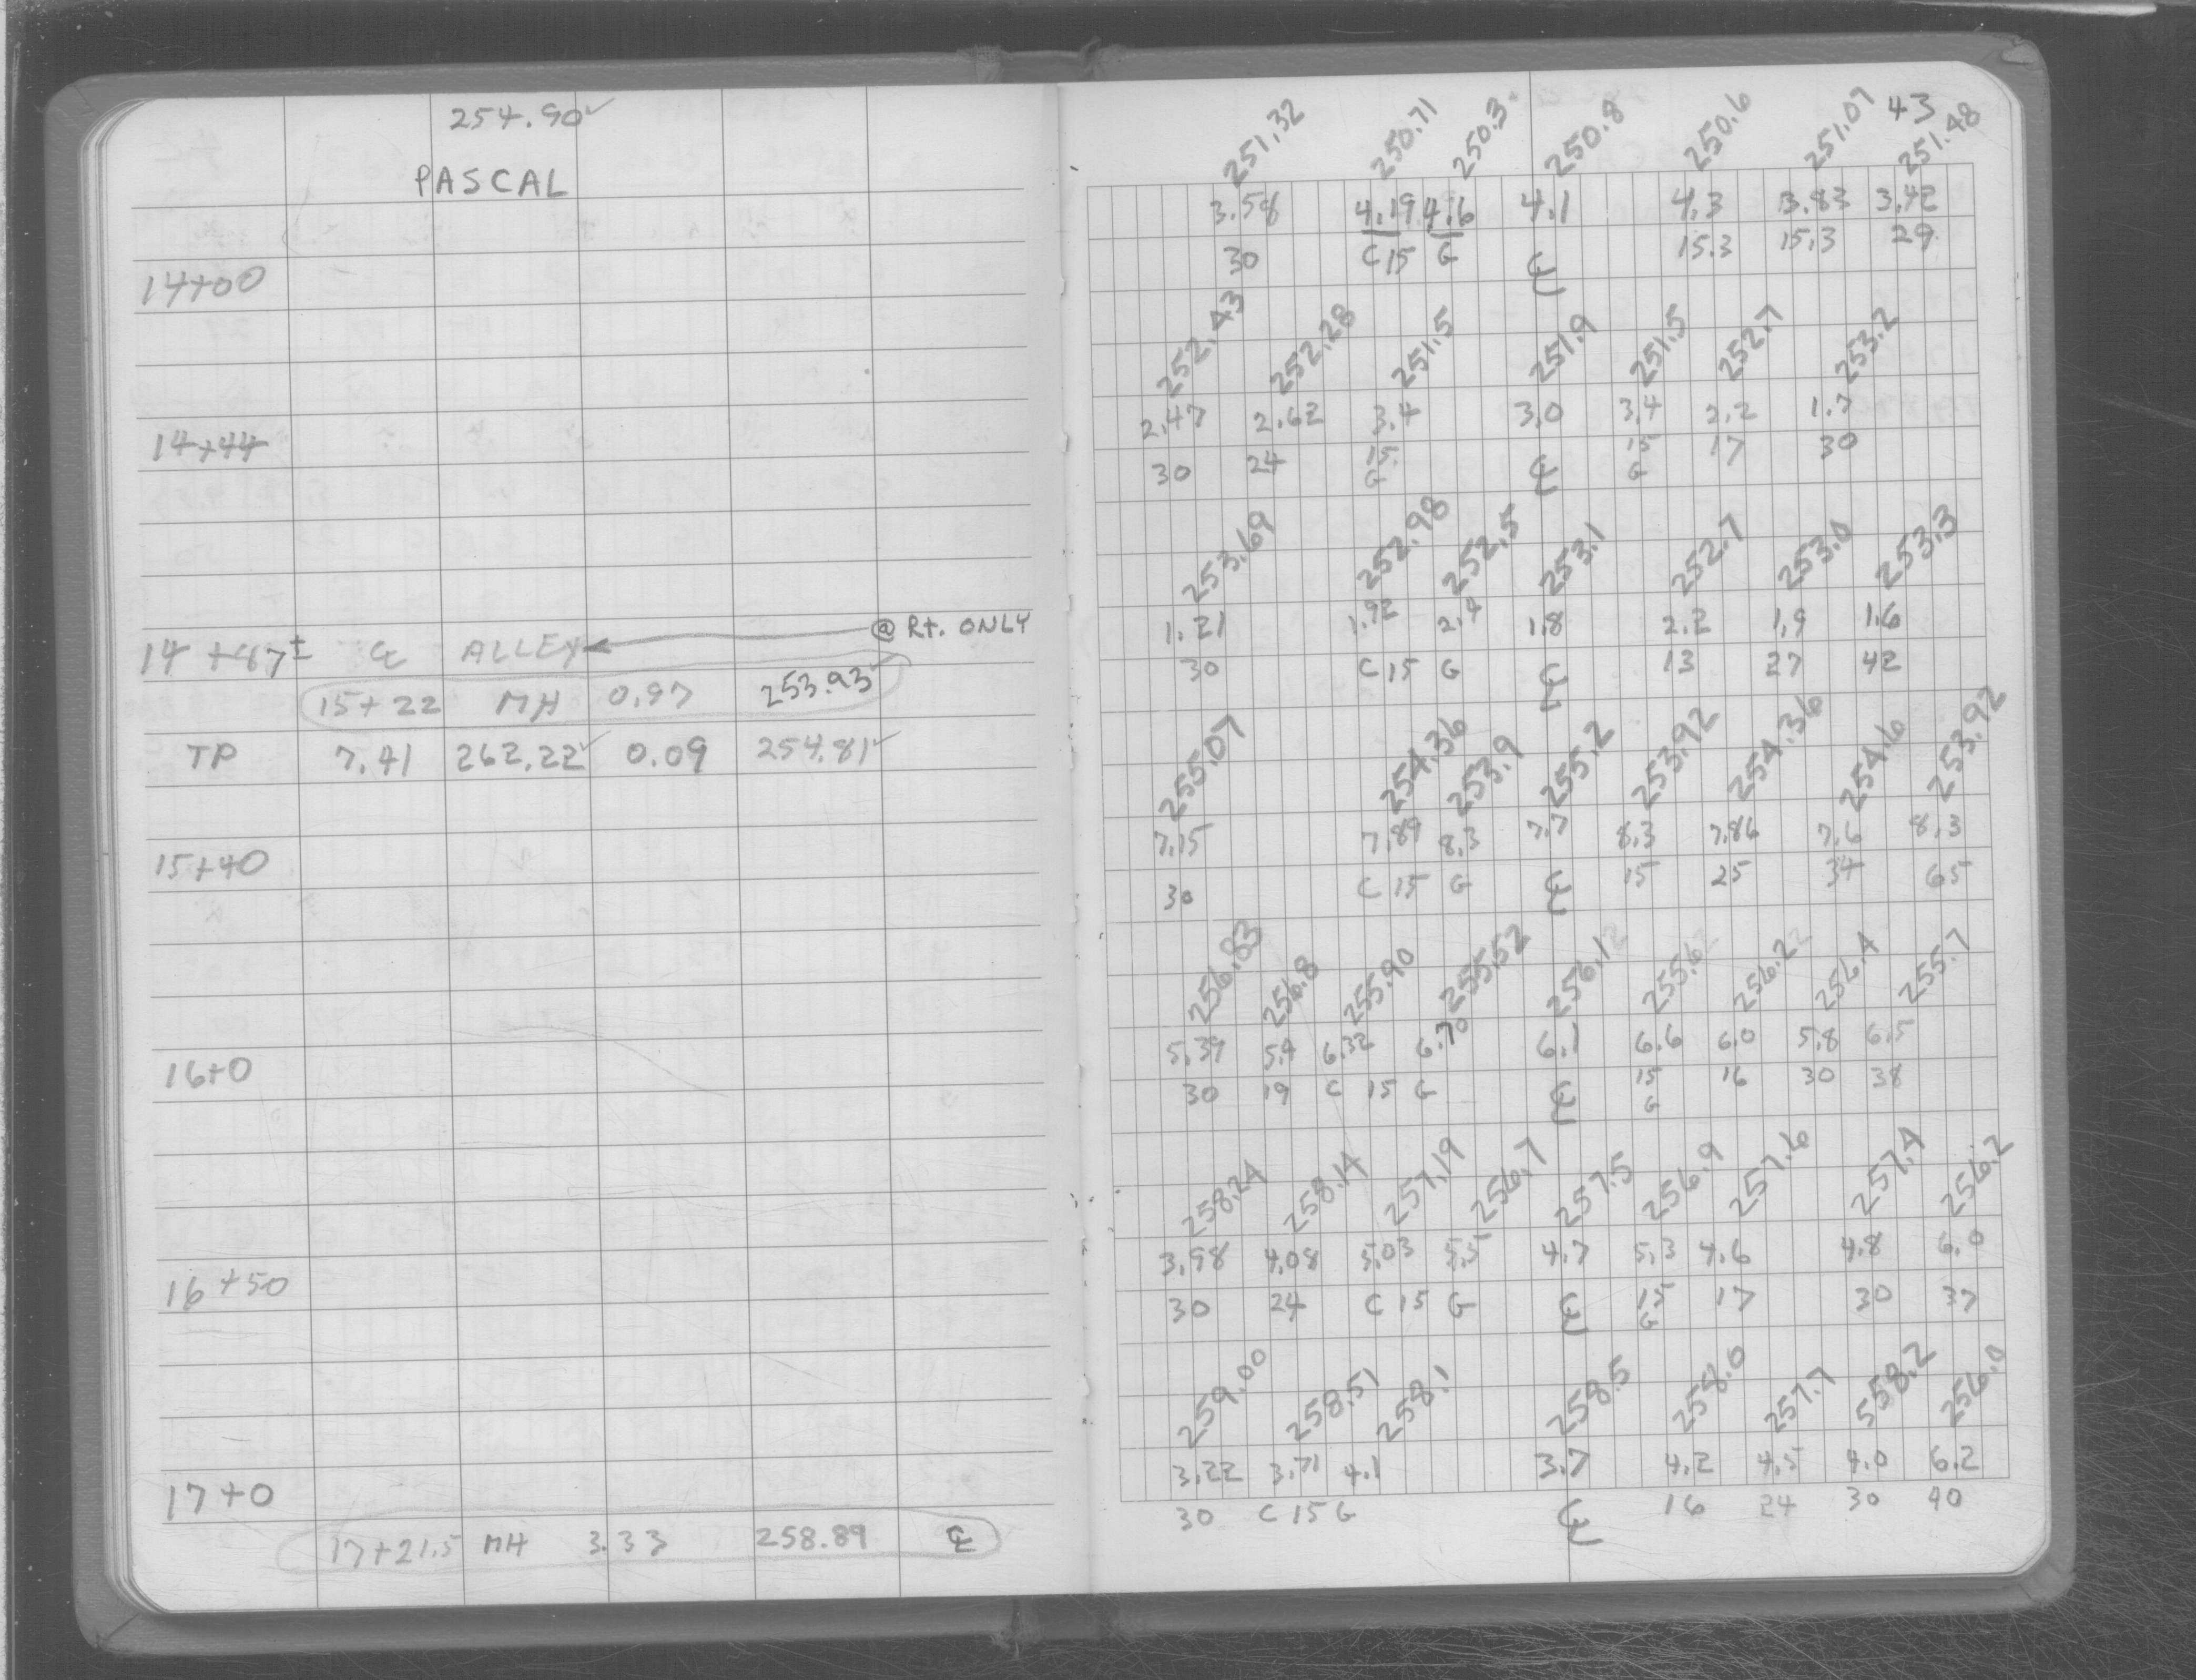 254.90✓
PASCAL
14+00
14+44
14+87± ℄ ALLEY @ Rt. ONLY
15+22 MH 0.97 253.93✓
TP 7.41 262.22✓ 0.09 254.81✓
15+40
16+0
16+50
17+0
17+21.5 MH 3.33 258.89 ℄
43
251.32 250.71 250.3 250.8 250.6 251.07 251.48
3.58 4.19 4.6 4.1 4.3 3.83 3.42
30 C 15 G ℄ 15.3 15.3 29
252.43 252.28 251.5 251.9 251.5 252.7 253.2
2.47 2.62 3.4 3.0 3.4 2.2 1.7
30 24 15 ℄ 15 17 30
G G
253.69 252.98 252.5 253.1 252.7 253.0 253.3
1.21 1.92 2.4 1.8 2.2 1.9 1.6
30 C 15 G ℄ 13 27 42
255.07 254.36 253.9 255.2 253.92 254.36 254.6 253.92
7.15 7.89 8.3 7.7 8.3 7.86 7.6 8.3
30 C 15 G ℄ 15 25 34 65
256.83 256.8 255.90 255.52 256.12 255.62 256.22 256.4 255.7
5.39 5.4 6.32 6.70 6.1 6.6 6.0 5.8 6.5
30 19 C 15 G ℄ 15 16 30 38
G
258.24 258.14 257.19 256.7 257.5 256.9 257.6 257.4 256.2
3.98 4.08 5.03 5.5 4.7 5.3 4.6 4.8 6.0
30 24 C 15 G ℄ 15 17 30 37
G
259.00 258.51 258.1 258.5 258.0 257.7 558.2 256.0
3.22 3.71 4.1 3.7 4.2 4.5 4.0 6.2
30 C 15 G ℄ 16 24 30 40